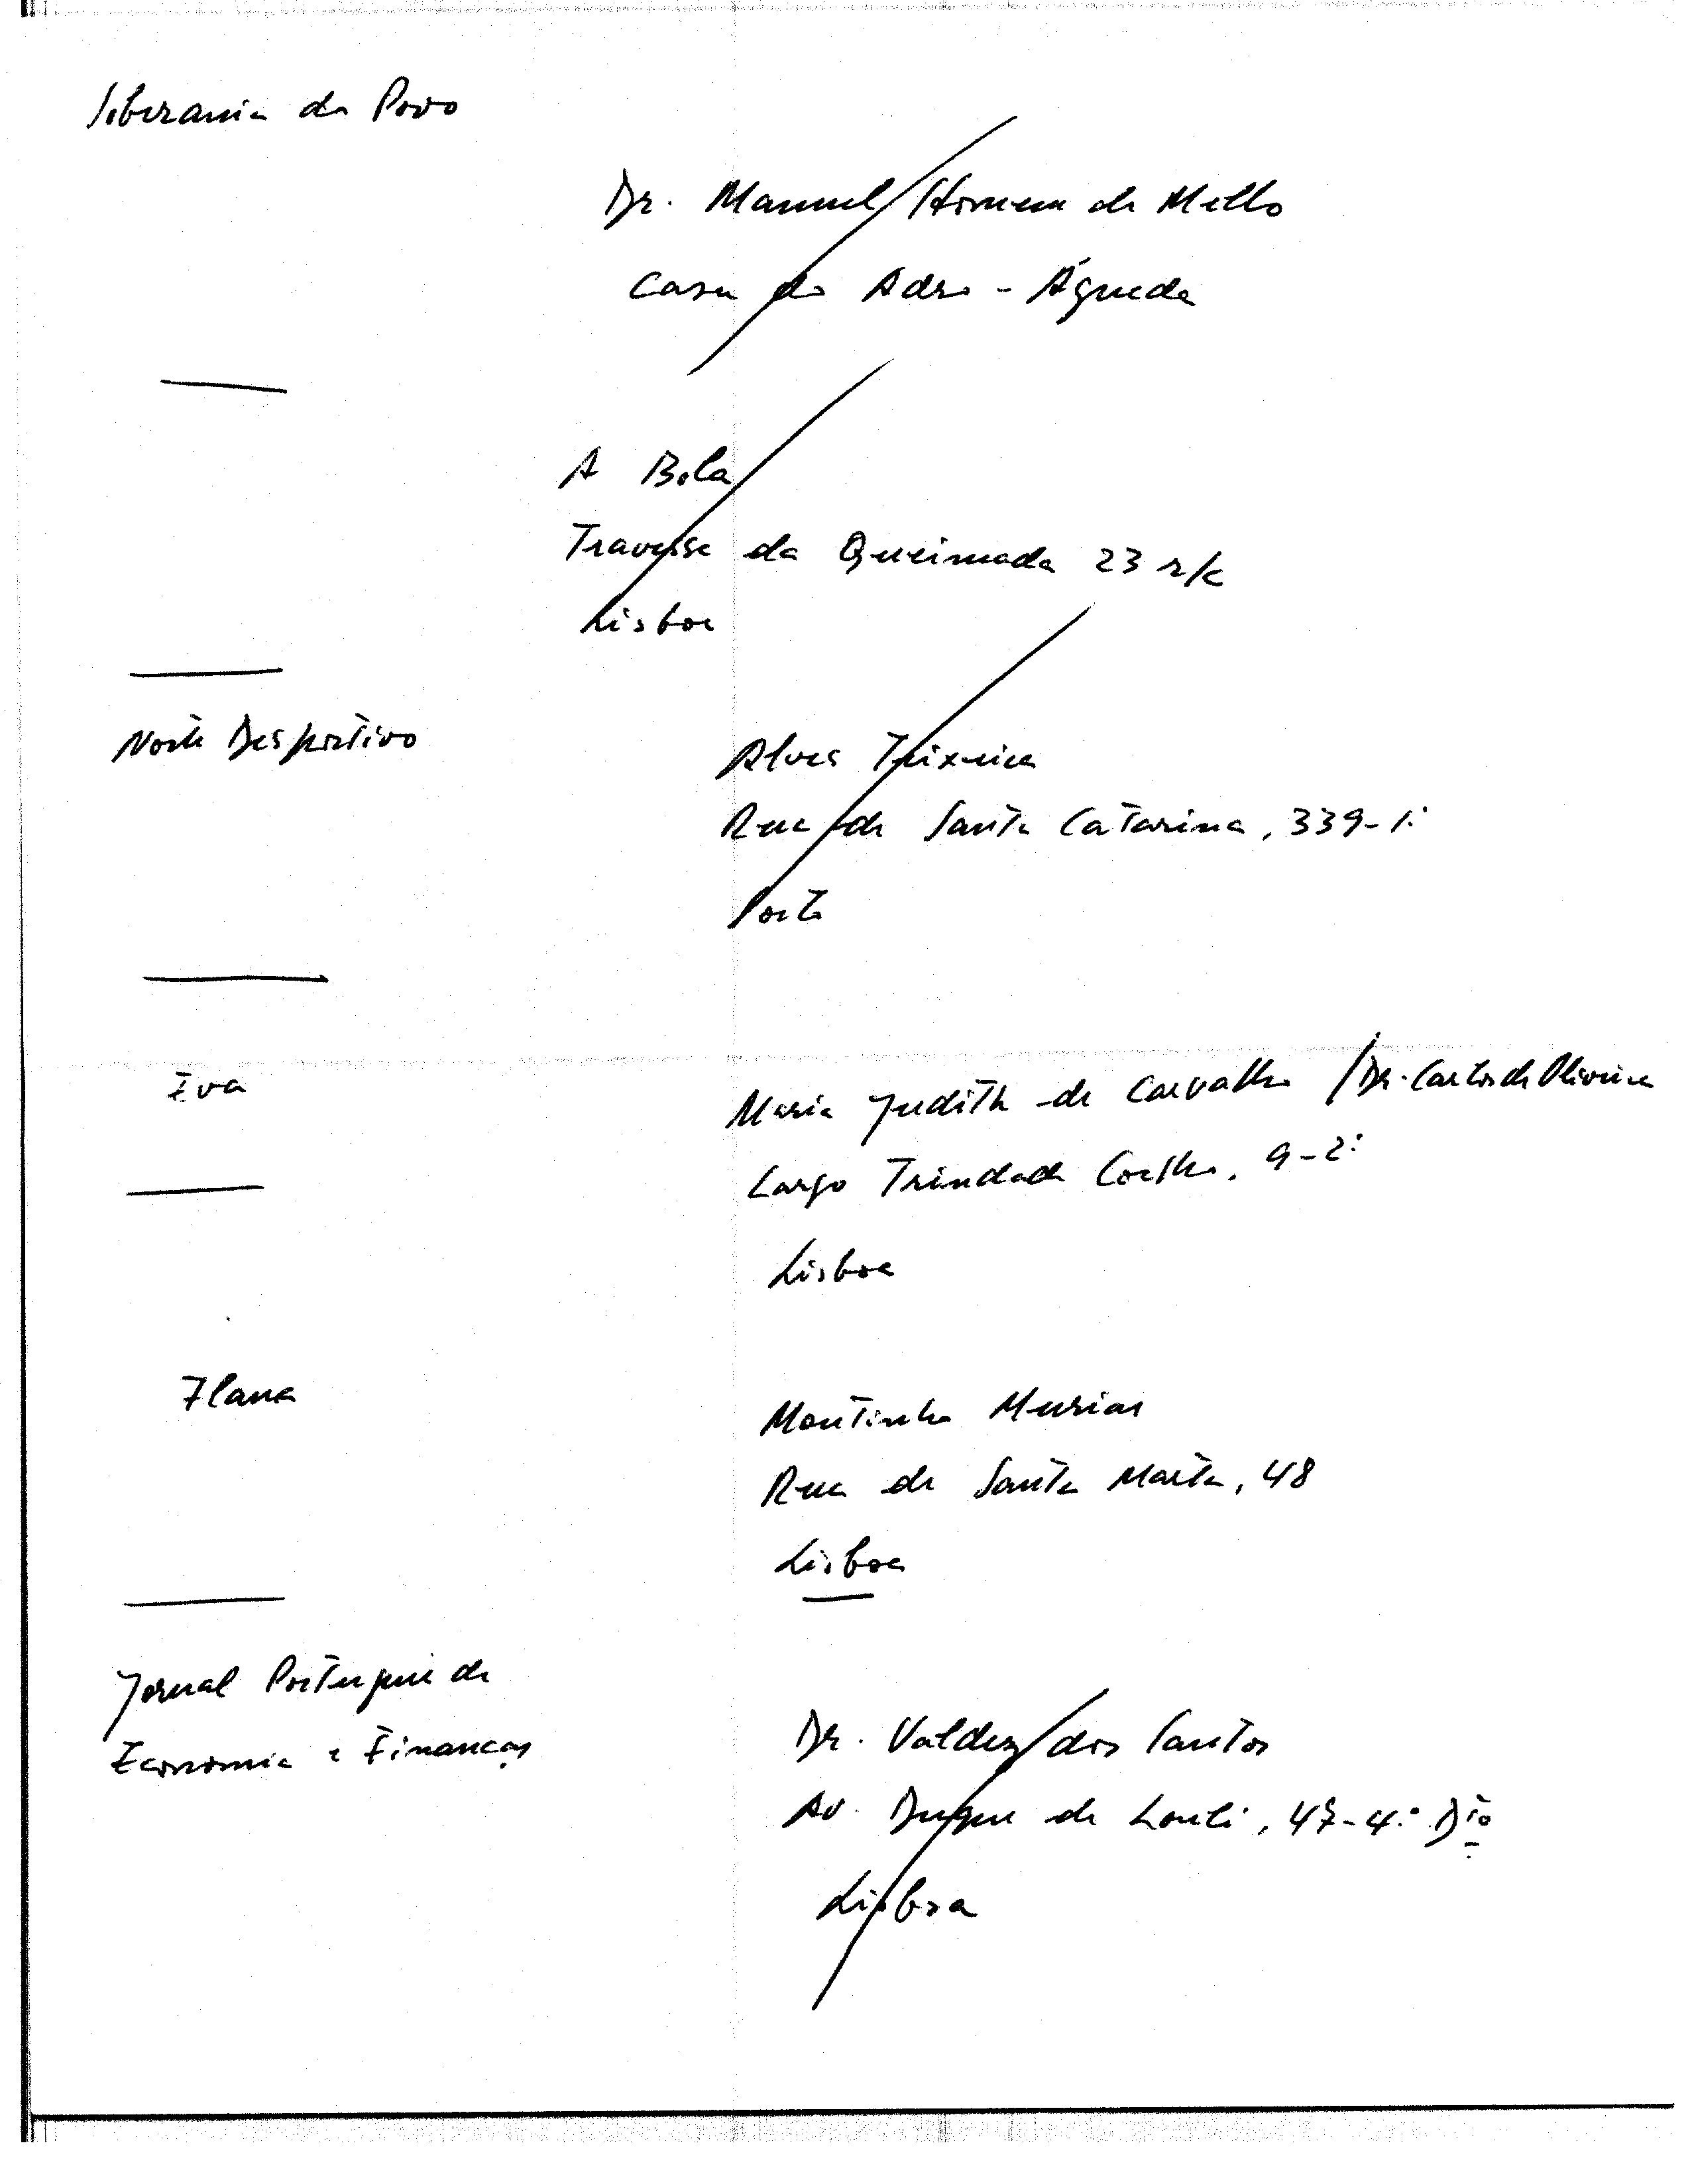 Soberania do Povo
Dr. Manuel Homem de Mello
Casa do Adro - Águeda
A Bola
Travessa da Queimada 23 r/c
Lisboa
Norte Desportivo
Alves Teixeira
Rua de Santa Catarina, 339-1º
Porto
Eva
Maria Judith de Carvalho / Dr. Carlos de Oliveira
Largo Trindade Coelho, 9-2º
Lisboa
Flama
Moutinho Murias
Rua de Santa Marta, 48
Lisboa
Jornal Português de
Economia e Finanças
Dr. Valdez dos Santos
Av. Duque de Loulé, 47-4.º Dto
Lisboa